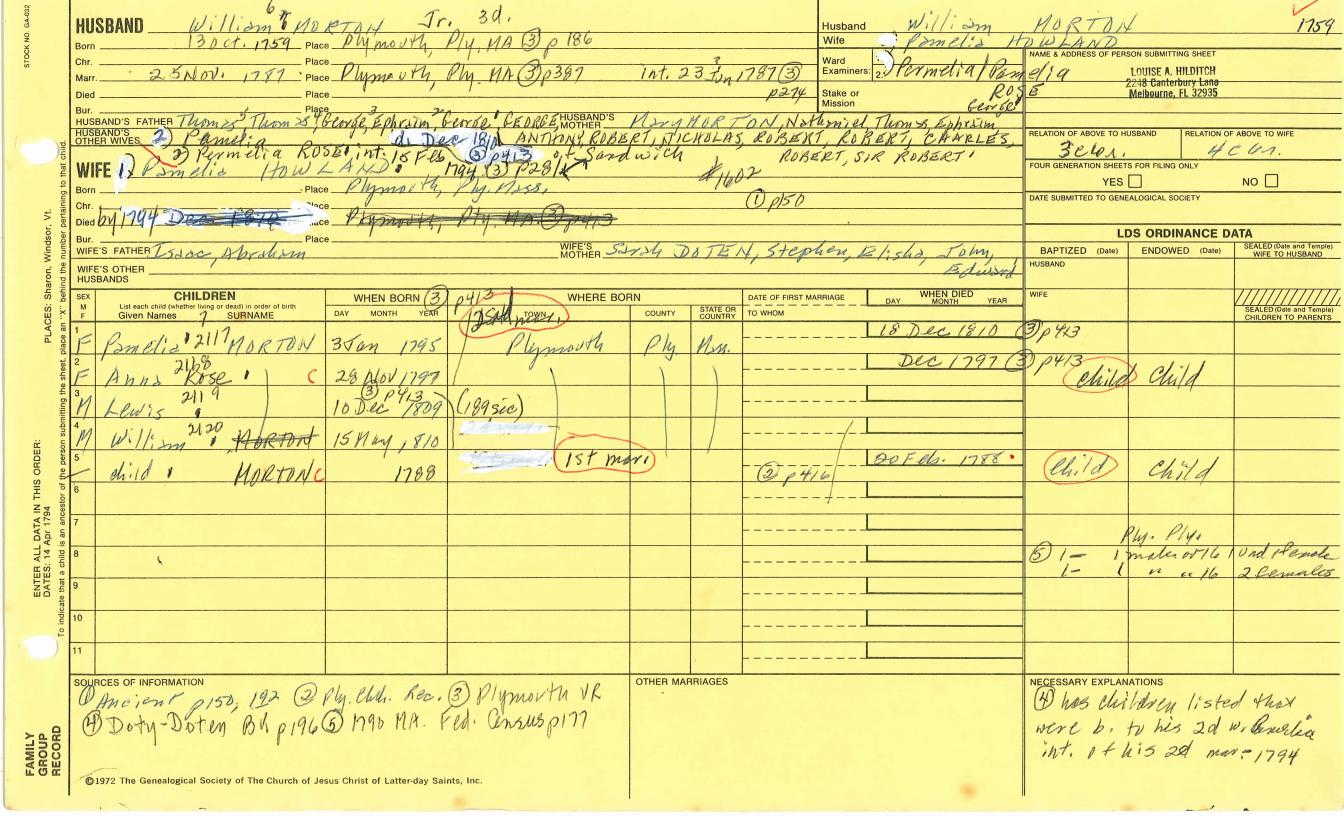 STOCK NO. GA-032
HUSBAND William 6 MORTON Jr. 3d.
Born 13 Oct. 1759 Place Plymouth, Ply, MA ③ p 186
Chr. Place
Marr. 25 Nov. 1787 Place Plymouth, Ply. MA ③ p387 int. 23 Jun 1787 ③ p274
Died Place
Bur. Place
Husband William MORTON 1759
Wife Pamelia HOWLAND
Ward
Examiners: 2. Permelia/Pamelia
ROSE
Stake or
Mission
George
NAME & ADDRESS OF PERSON SUBMITTING SHEET
LOUISE A. HILDITCH
2248 Canterbury Lane
Melbourne, FL 32935
HUSBAND'S FATHER Thomas, Thomas, George, Ephraim, George, GEORGE HUSBAND'S MOTHER Mary MORTON, Nathaniel, Thomas, Ephraim,
HUSBAND'S OTHER WIVES 2) Pamelia d. Dec 1810 ANTHONY, ROBERT, NICHOLAS, ROBERT, ROBERT, CHARLES,
2) Permelia ROSE int. 15 Feb ③ p413 of Sandwich ROBERT, SIR ROBERT
WIFE 1) Pamelia HOWLAND 1794 ③ p281 #1602
Born Place Plymouth, Ply. Mass.
Chr. Place ① p150
Died by 1794 Dec 1810 Place Plymouth, Ply. MA. ③ p413
Bur. Place
WIFE'S FATHER Isaac, Abraham WIFE'S MOTHER Sarah DOTEN, Stephen, Elisha, John,
Edward
WIFE'S OTHER HUSBANDS
RELATION OF ABOVE TO HUSBAND RELATION OF ABOVE TO WIFE
FOUR GENERATION SHEETS FOR FILING ONLY
YES NO
DATE SUBMITTED TO GENEALOGICAL SOCIETY
LDS ORDINANCE DATA
BAPTIZED (Date) ENDOWED (Date) SEALED (Date and Temple) WIFE TO HUSBAND
HUSBAND
WIFE
SEALED (Date and Temple) CHILDREN TO PARENTS
SEX M F CHILDREN List each child (whether living or dead) in order of birth Given Names 7 SURNAME
WHEN BORN ③ p413 DAY MONTH YEAR
WHERE BORN TOWN COUNTY STATE OR COUNTRY
DATE OF FIRST MARRIAGE TO WHOM
WHEN DIED DAY MONTH YEAR
1 F Pamelia 2117 MORTON 3 Jan 1795 Plymouth Ply Mass. 18 Dec 1810 ③ p413
2 F Anna Rose 2118 C 28 Nov 1797 Dec 1797 ③ p413 child Child
③ p413
3 M Lewis 2119 10 Dec 1809 (189 sic)
4 M William 2120 MORTON 15 May, 810
5 - child MORTON C 1788 1st mar. ② p416 20 Feb. 1788 child Child
6
7
8
9
10
11
Ply. Ply.
⑤ 1— 1 male or 16 1 und female
1— 1 " " 16 2 females
SOURCES OF INFORMATION
① Ancient p150, 192 ② Ply. Chh. Rec. ③ Plymouth VR
④ Doty-Doten Bk p196 ⑤ 1790 MA. Fed. Census p177
OTHER MARRIAGES
NECESSARY EXPLANATIONS
④ has children listed that
were b. to his 2d w. Pamelia
int. of his 2d mar. 1794
©1972 The Genealogical Society of The Church of Jesus Christ of Latter-day Saints, Inc.
PLACES: Sharon, Windsor, Vt.
ENTER ALL DATA IN THIS ORDER:
DATES: 14 Apr 1794
To indicate that a child is an ancestor of the person submitting the sheet, place an "X" behind the number pertaining to that child.
FAMILY
GROUP
RECORD